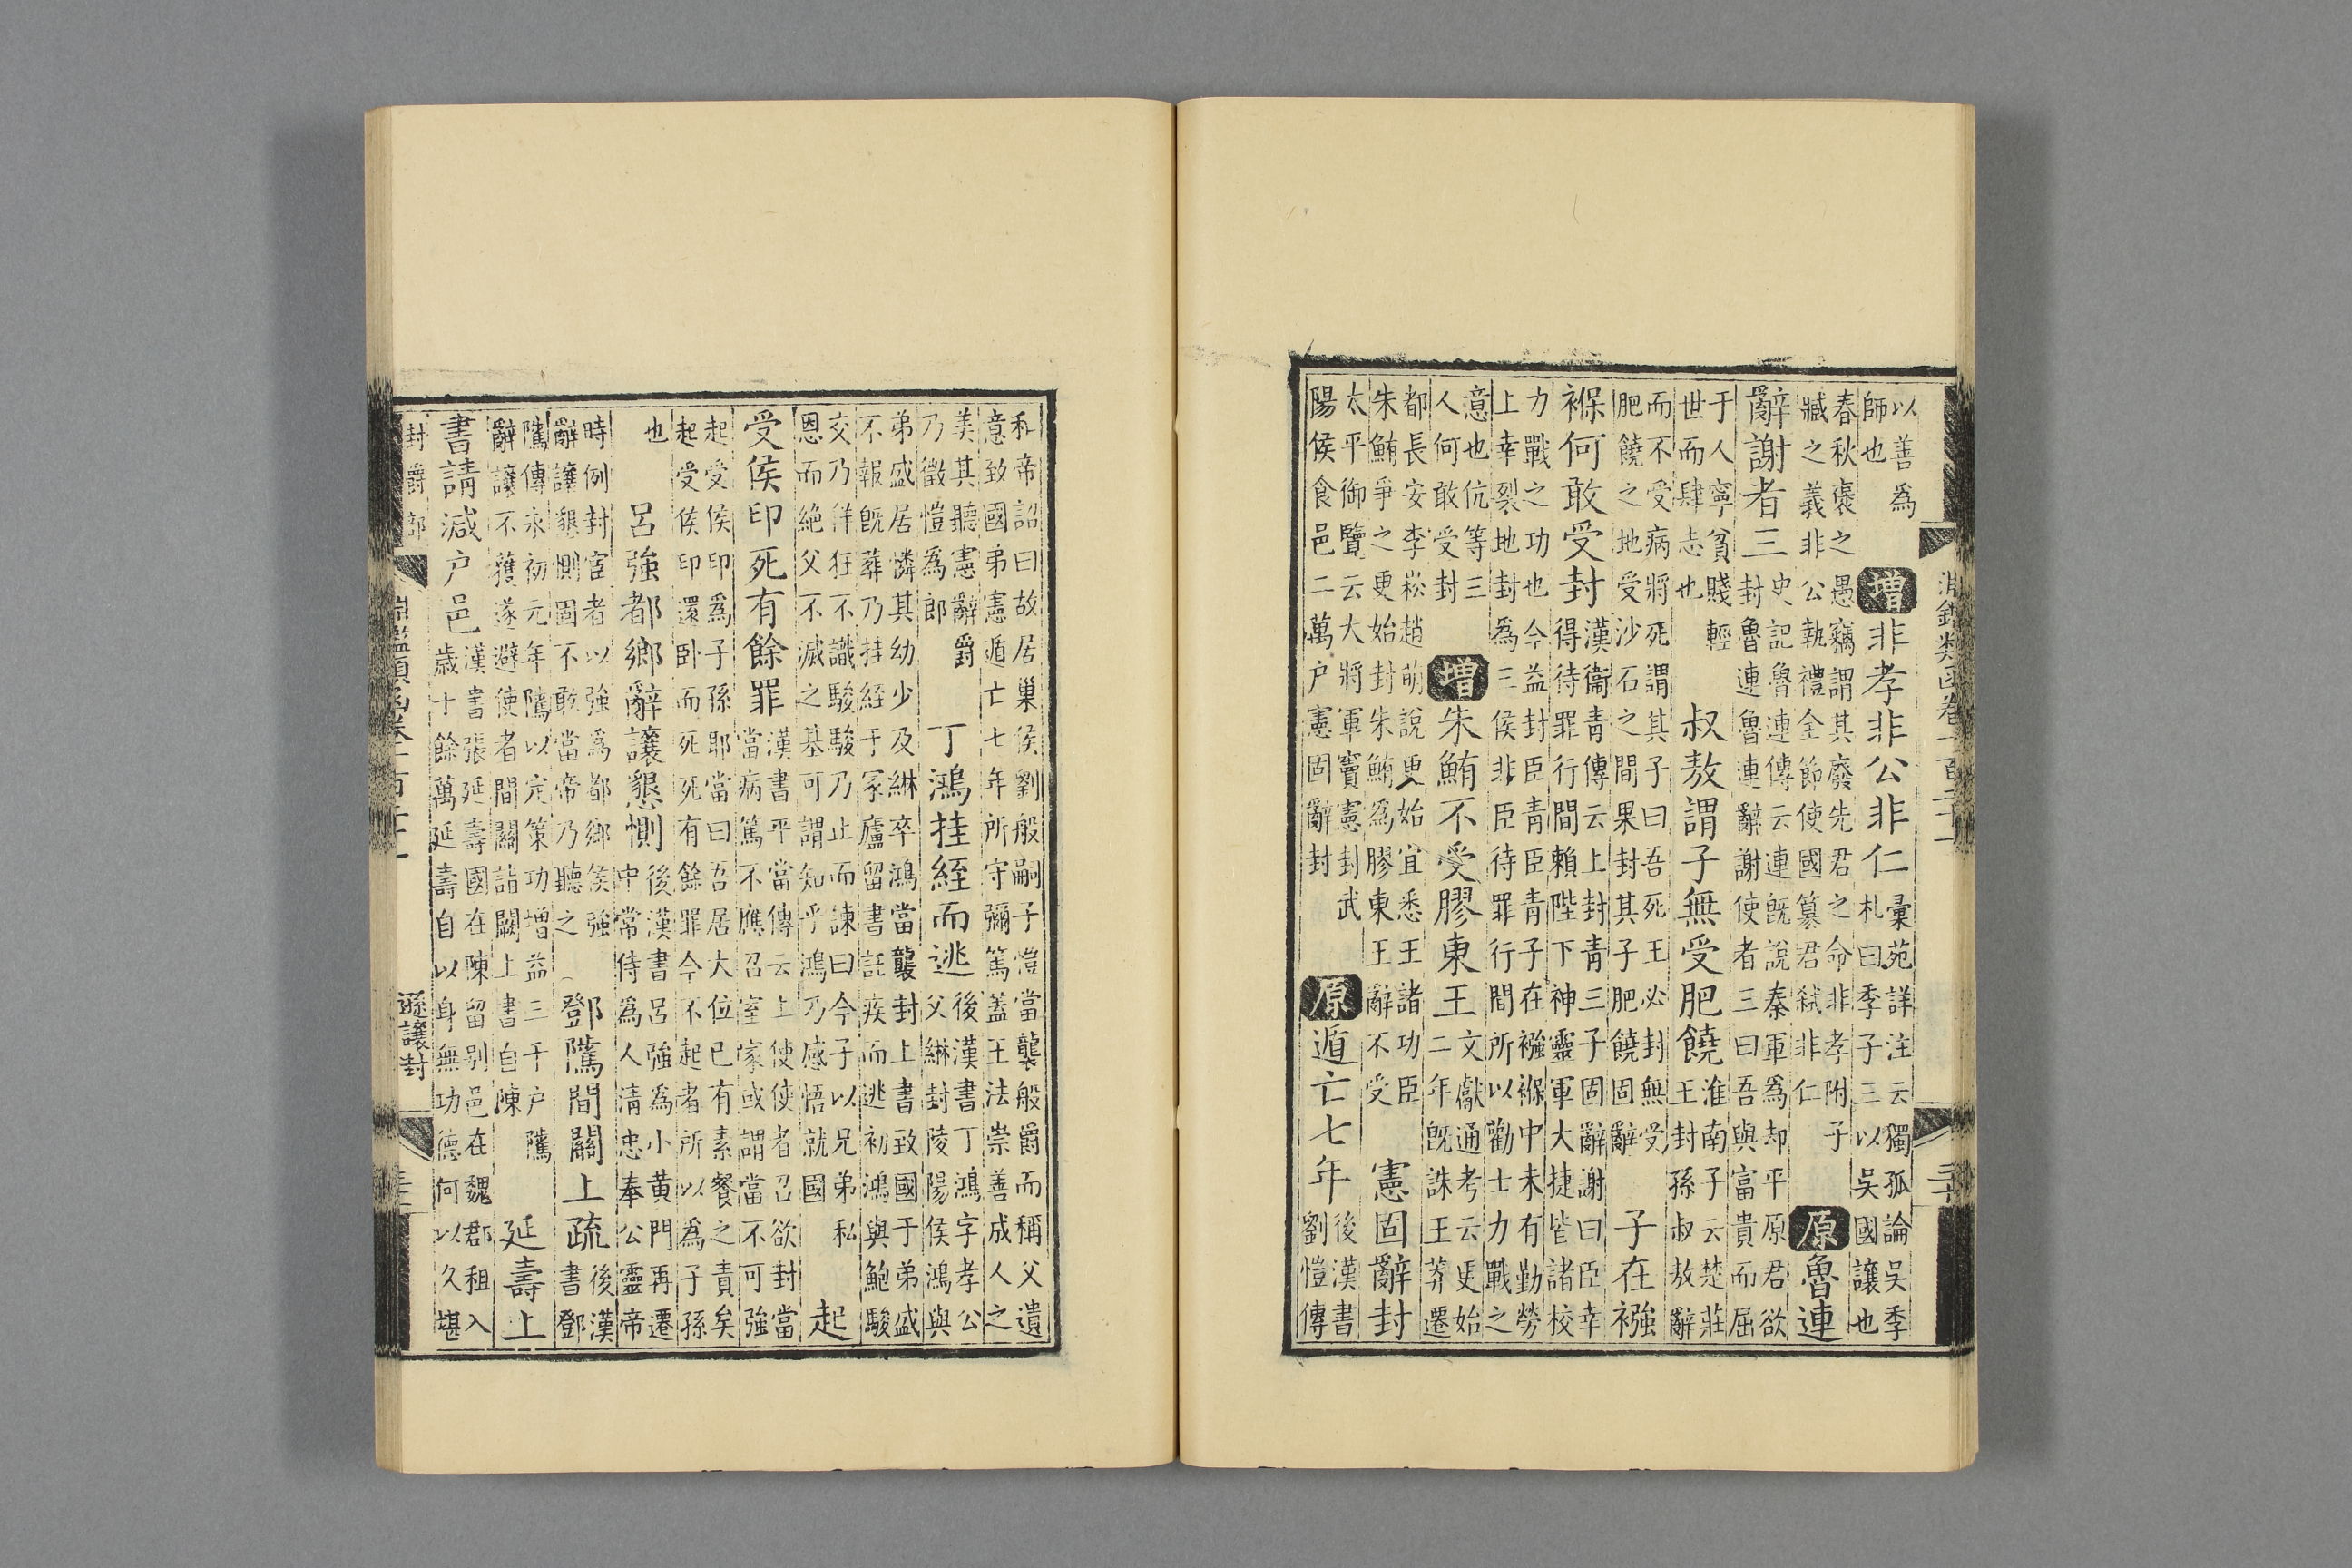 淵鑑類函卷一百二十一
二十
以善為
師也
增
非孝非公非仁
彙苑詳注云獨孤論吳季
札曰季子三以吳國讓也
春秋褒之愚竊謂其廢先君之命非孝附子
臧之義非公執禮全節使國篡君弒非仁
原
魯連
辭謝者三
史記魯連傳云連既說秦軍為却平原君欲
封魯連魯連辭謝使者三曰吾與富貴而屈
于人寧貧賤輕
世而肆志也
叔敖謂子無受肥饒
淮南子云楚莊
王封孫叔敖辭
而不受病將死謂其子曰吾死王必封無受
肥饒之地受沙石之間果封其子肥饒固辭
子在襁
褓何敢受封
漢衞青傳云上封青三子固辭謝曰臣幸
得待罪行間賴陛下神靈軍大捷皆諸校
力戰之功也今益封臣青臣青子在襁褓中未有勤勞
上幸裂地封為三侯非臣待罪行間所以勸士力戰之
意也伉等三
人何敢受封
增
朱鮪不受膠東王
文獻通考云更始
二年既誅王莽遷
都長安李崧趙萌說更始宜悉王諸功臣
朱鮪爭之更始封朱鮪為膠東王辭不受
憲固辭封
太平御覽云大將軍竇憲封武
陽侯食邑二萬户憲固辭封
原
遁亡七年
後漢書
劉愷傳
私帝詔曰故居巢侯劉般嗣子愷當襲般爵而稱父遺
意致國弟憲遁亡七年所守彌篤蓋王法崇善成人之
美其聽憲辭爵
乃徵愷為郎
丁鴻挂絰而逃
後漢書丁鴻字孝公
父綝封陵陽侯鴻與
弟盛居憐其幼少及綝卒鴻當襲封上書致國于弟盛
不報既葬乃挂絰于冢廬留書託疾而逃初鴻與鮑駿
交乃佯狂不識駿駿乃止而諫曰今子以兄弟私
恩而絶父不滅之基可謂知乎鴻乃感悟就國
起
受侯印死有餘罪
漢書平當傳云上使使者召欲封當
當病篤不應召室家或謂當不可強
起受侯印為子孫耶當曰吾居大位已有素餐之責矣
起受侯印還卧而死死有餘罪今不起者所以為子孫
也
呂強都鄉辭讓懇惻
後漢書呂強為小黃門再遷
中常侍為人清忠奉公靈帝
時例封宦者以強為都鄉侯強
辭讓懇惻固不敢當帝乃聽之
鄧隲間關上疏
後漢
書鄧
隲傳永初元年隲以定策功增益三千户隲
辭讓不獲遂避使者間關詣闕上書自陳
延壽上
書請減户邑
漢書張延壽國在陳留别邑在魏郡租入
歲十餘萬延壽自以身無功德何以久堪
封爵部
淵鑑類函卷一百二十一
遜讓封